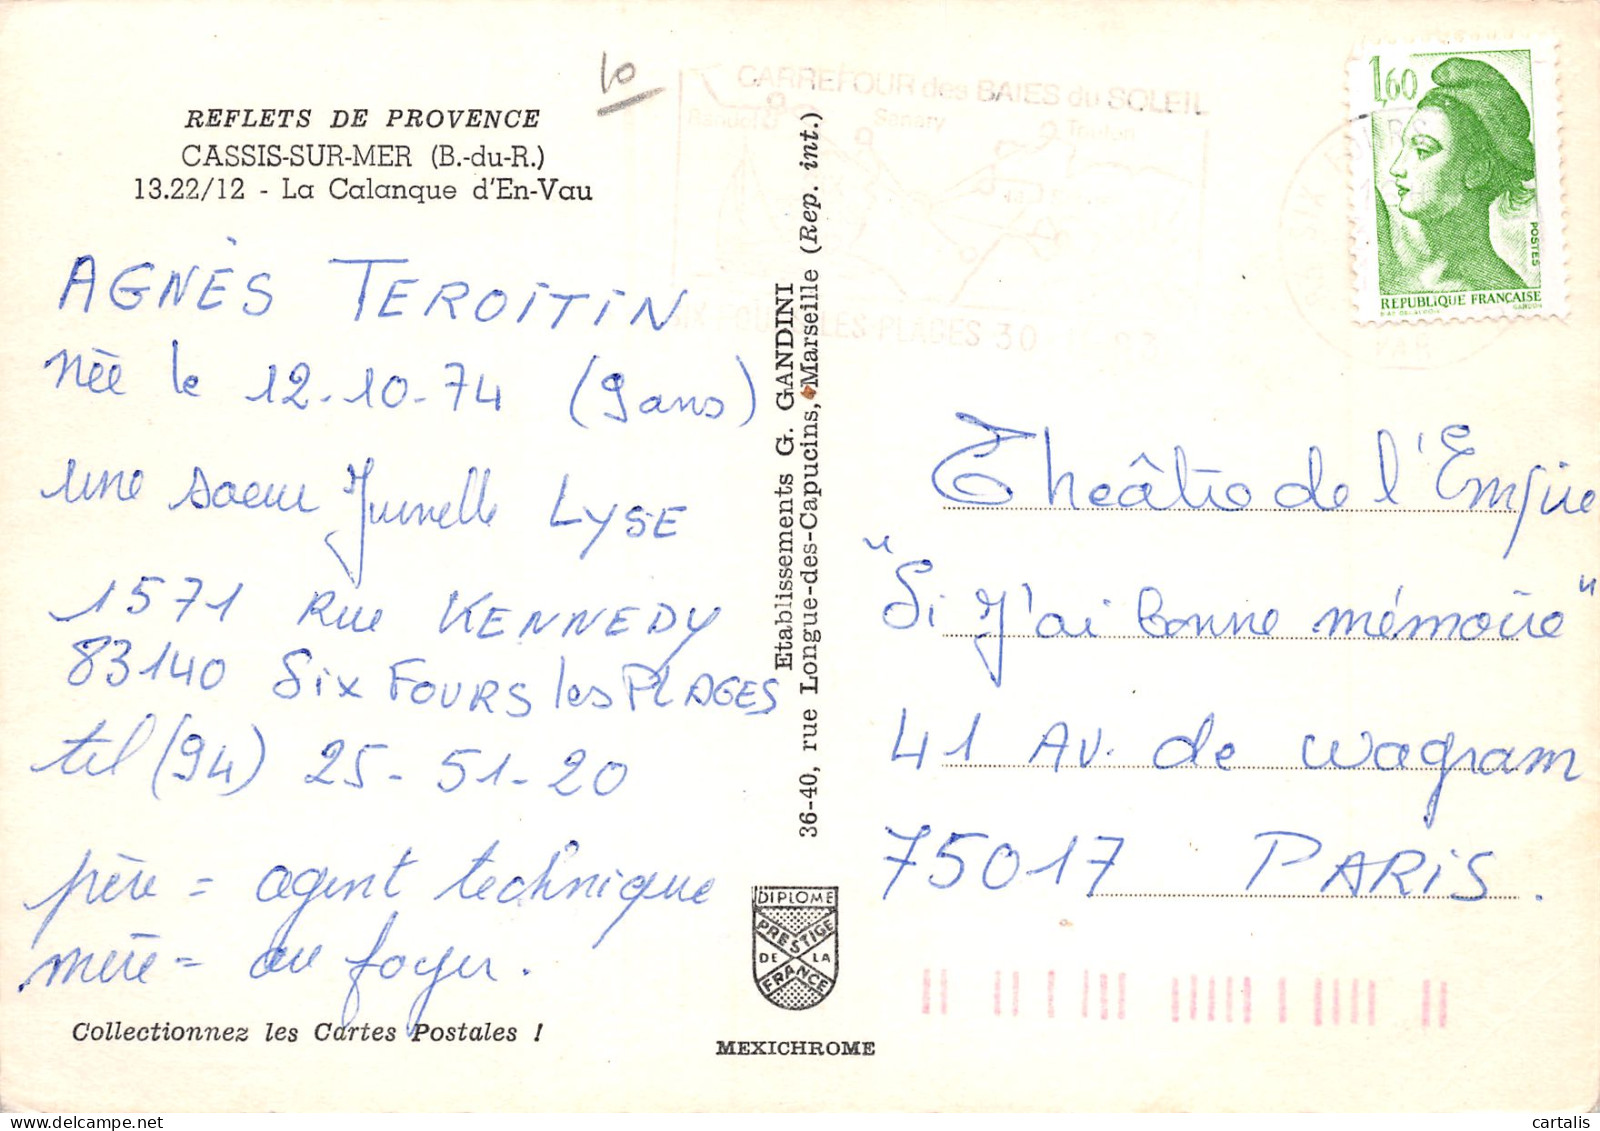 REFLETS DE PROVENCE
CASSIS-SUR-MER (B.-du-R.)
13.22/12 - La Calanque d'En-Vau
10
AGNÈS TEROITIN
née le 12-10-74 (9 ans)
une soeur Jumelle LYSE
1571 Rue KENNEDY
83140 Six FOURS les PLAGES
tel (94) 25-51-20
père = agent technique
mère = au foyer.
Collectionnez les Cartes Postales !
Etablissements G. GANDINI
36-40, rue Longue-des-Capucins, Marseille (Rep. int.)
DIPLOME
PRESTIGE
DE LA
FRANCE
MEXICHROME
CARREFOUR des BAIES du SOLEIL
Sanary
Toulon
LES PLAGES 30
VAR
1,60
POSTES
REPUBLIQUE FRANÇAISE
Théâtre de l'Empire
"Si J'ai bonne mémoire"
41 Av. de Wagram
75017 PARIS.
cartalis